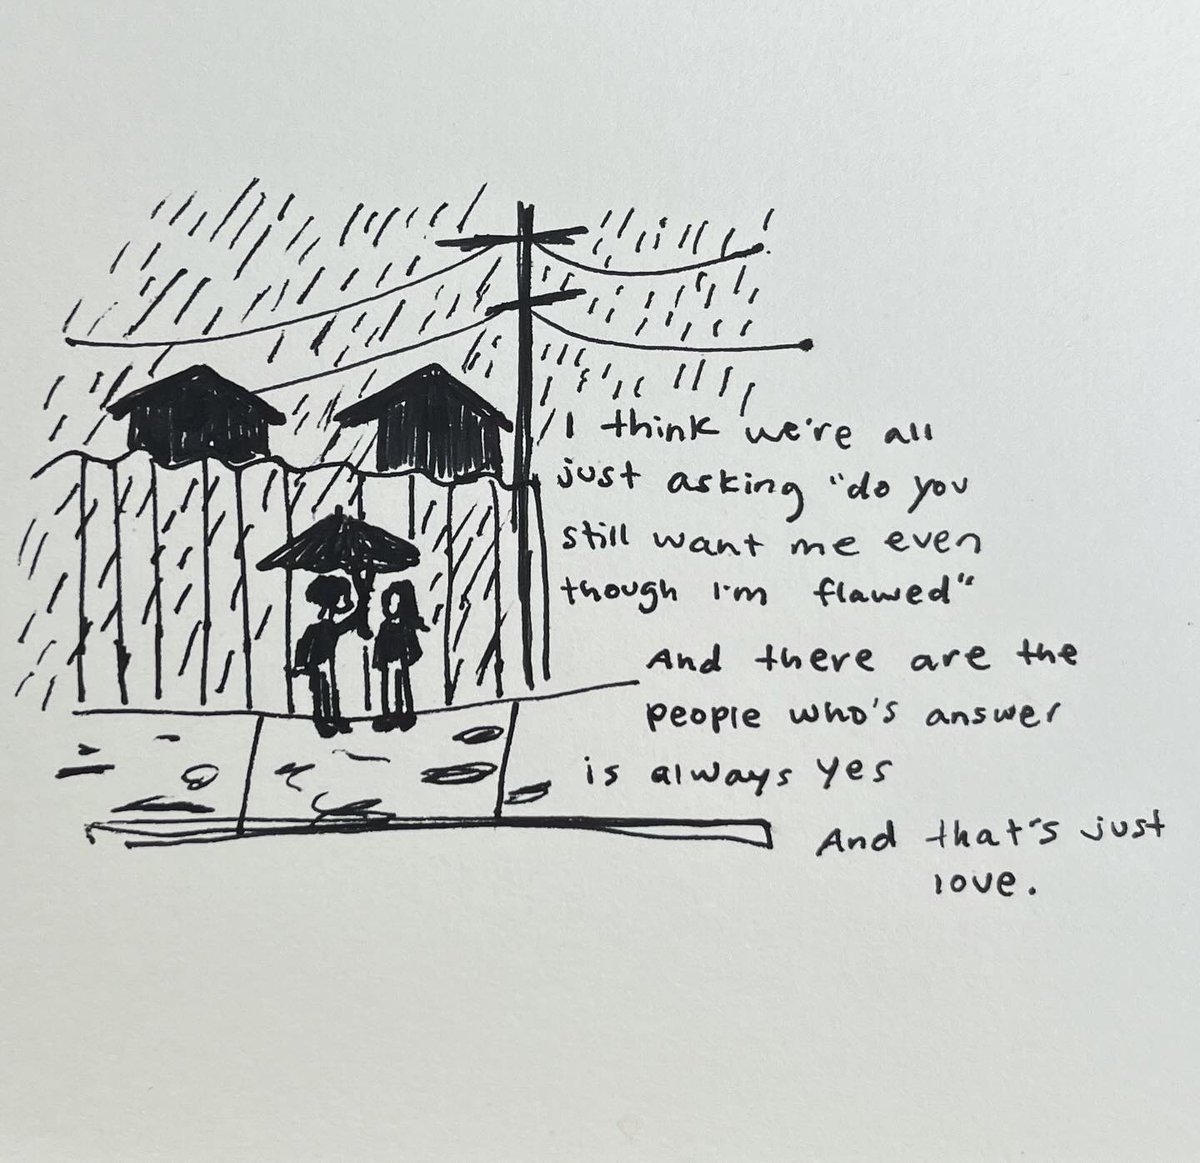 I think we're all
just asking "do you
still want me even
though I'm flawed"
And there are the
people who's answer
is always yes
And that's just
love.